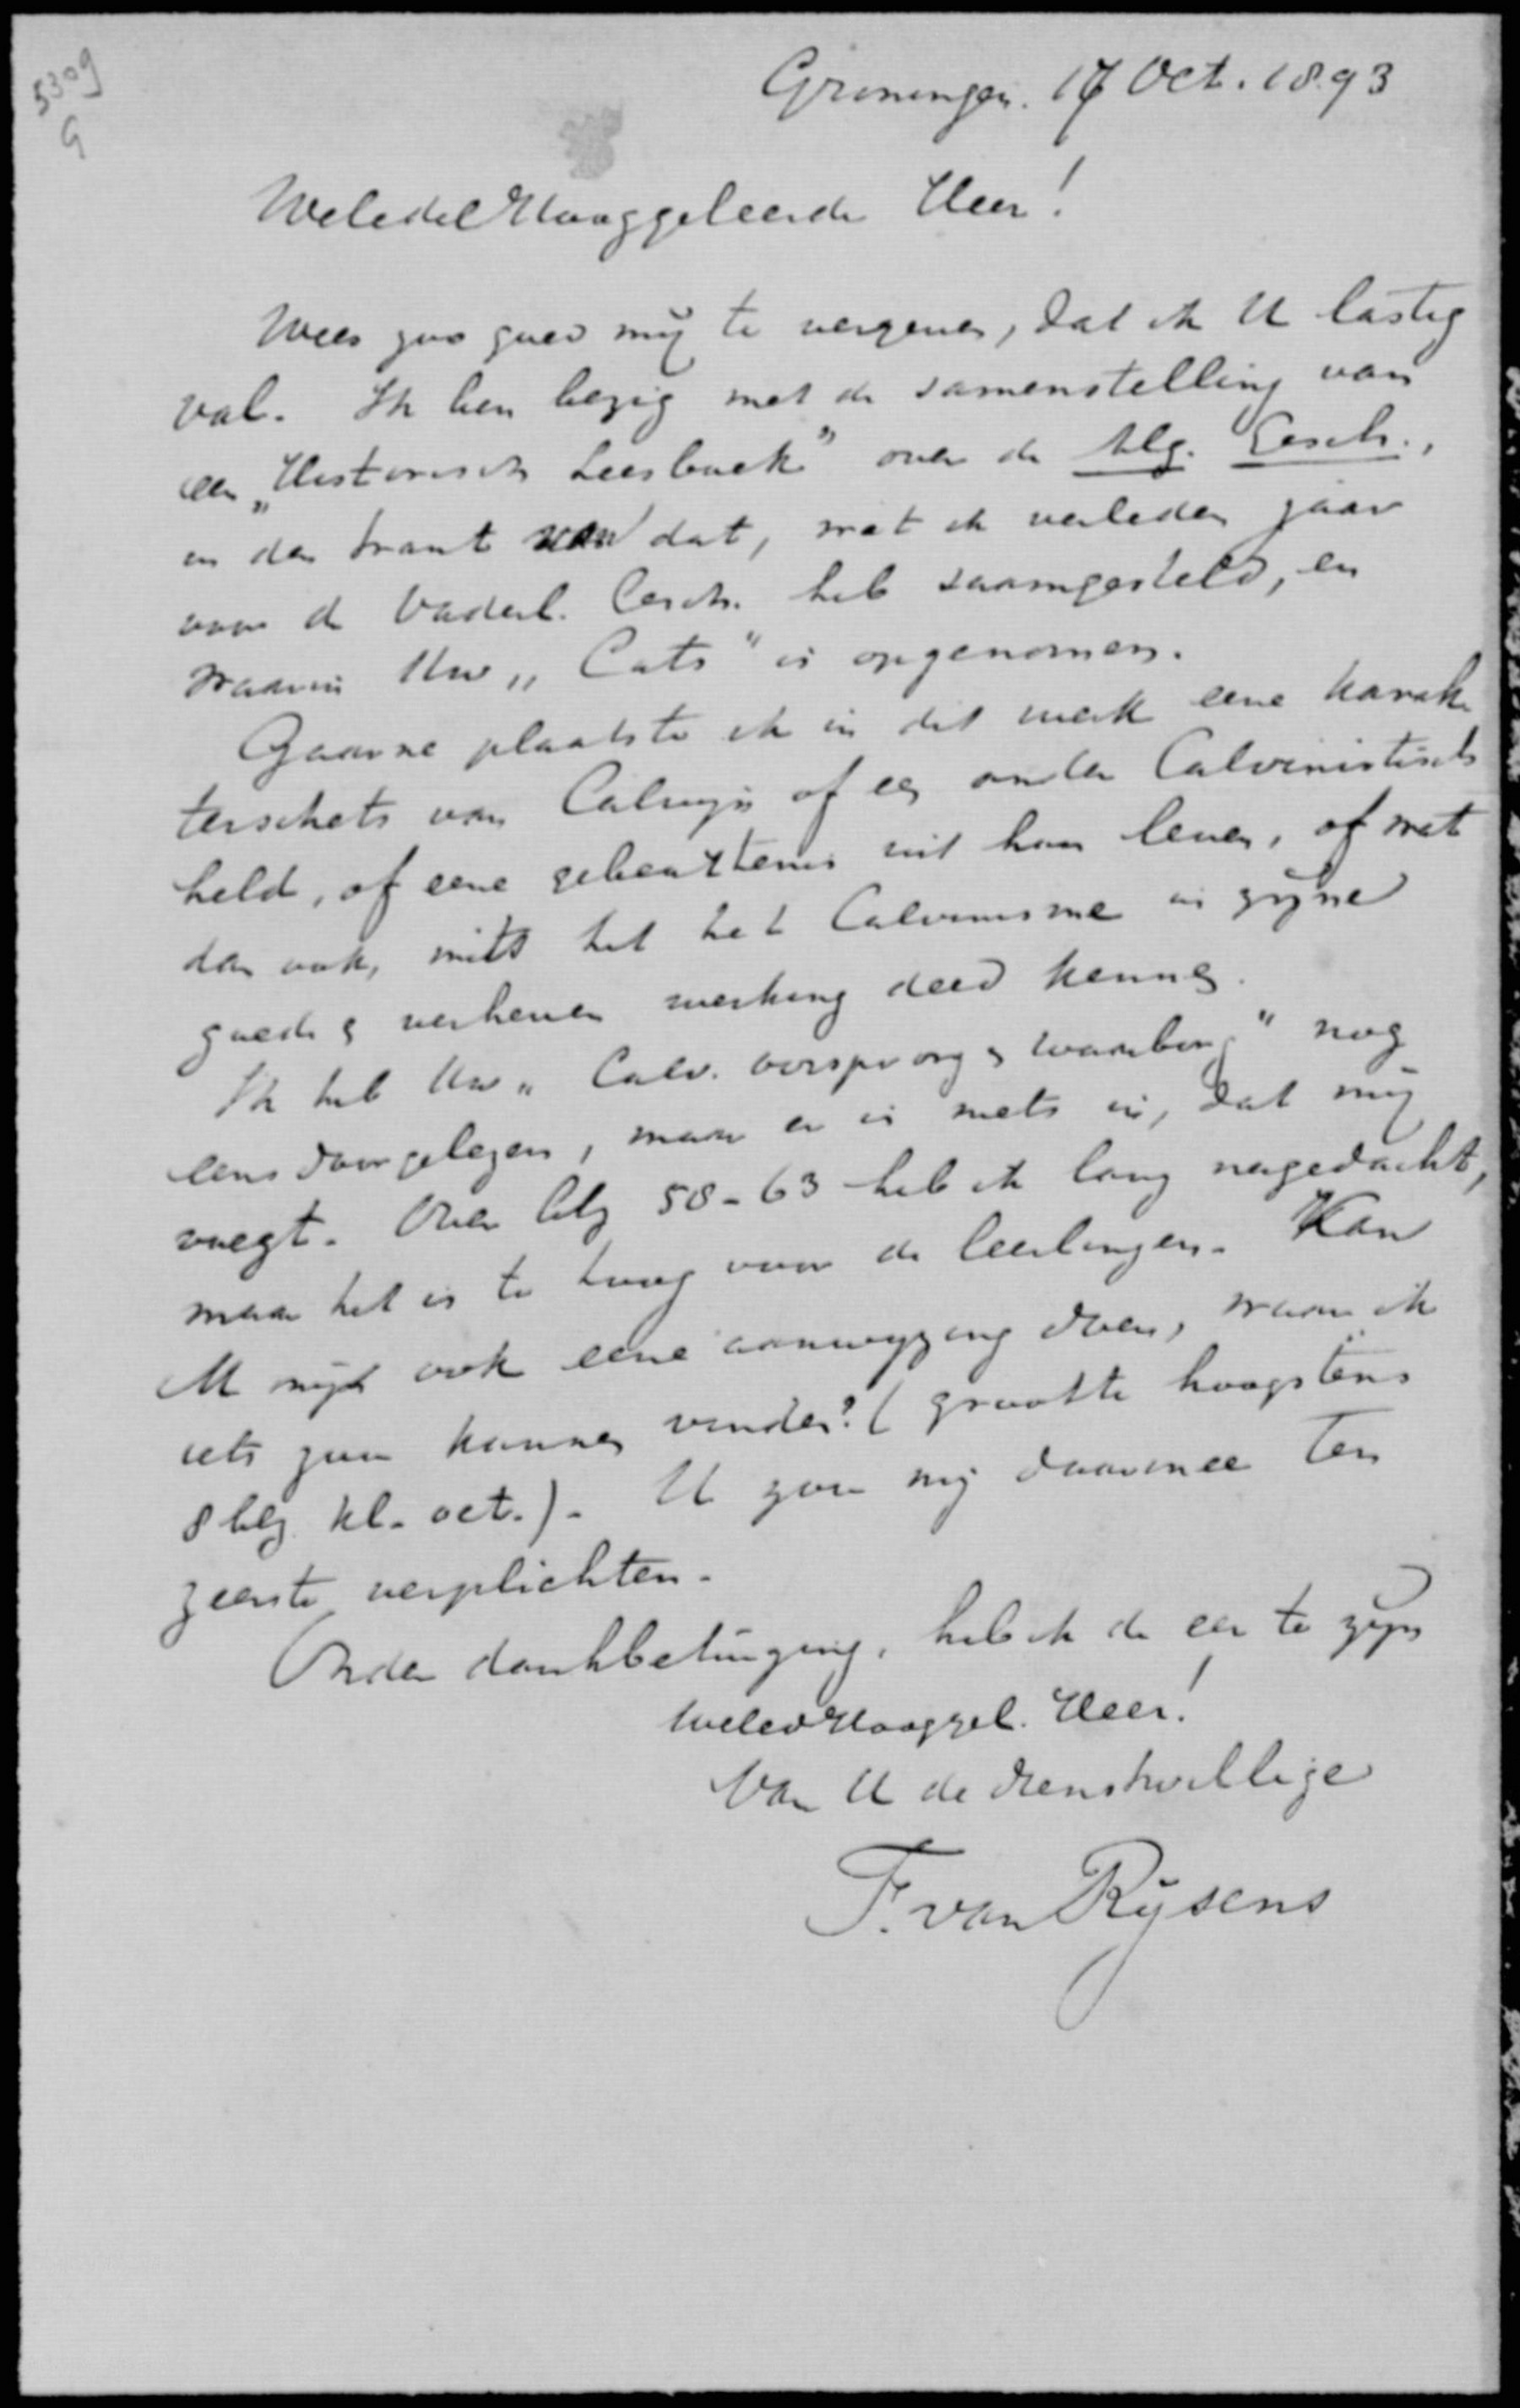 5309
G
Groningen. 17 Oct. 1893
WeledelHooggeleerde Heer!
Wees zoo goed mij te vergeven, dat ik U lastig
val. Ik ben bezig met de samenstelling van
een „Historisch Leesboek" over de Alg. Gesch.,
in den trant van dat, wat ik verleden jaar
voor de Vaderl. Gesch. heb saamgesteld, en
waarin Uw „Cats" is opgenomen.
Gaarne plaatste ik in dit werk eene karak
terschets van Calvijn of een ander Calvinistisch
held, of eene gebeurtenis uit hun leven, of wat
dan ook, mits het het Calvinisme in zijne
goede & verheven werking deed kennen.
Ik heb Uw „Calv. oorsprong & waarborg" nog
eens doorgelezen, maar er is niets in, dat mij
voegt. Over blz 58-63 heb ik lang nagedacht,
maar het is te hoog voor de leerlingen. Kan
U mij ook eene aanwijzing doen, waar ik
iets zou kunnen vinden? (grootte hoogstens
8 blz. kl. oct.). U zou mij daarmee ten
zeerste verplichten.
Onder dankbetuiging, heb ik de eer te zijn
WeledHooggel. Heer!
Van U de dienstwillige
F. van Rijsens